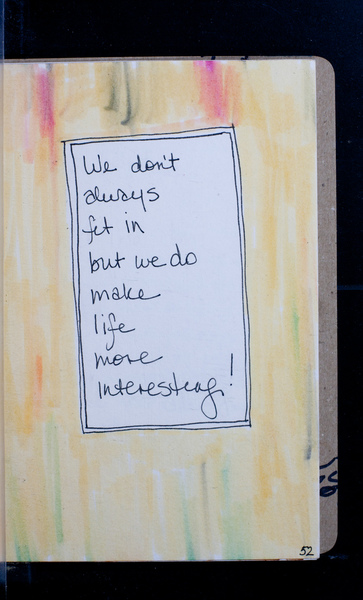 We don't
always
fit in
but we do
make
life
more
interesting!
52